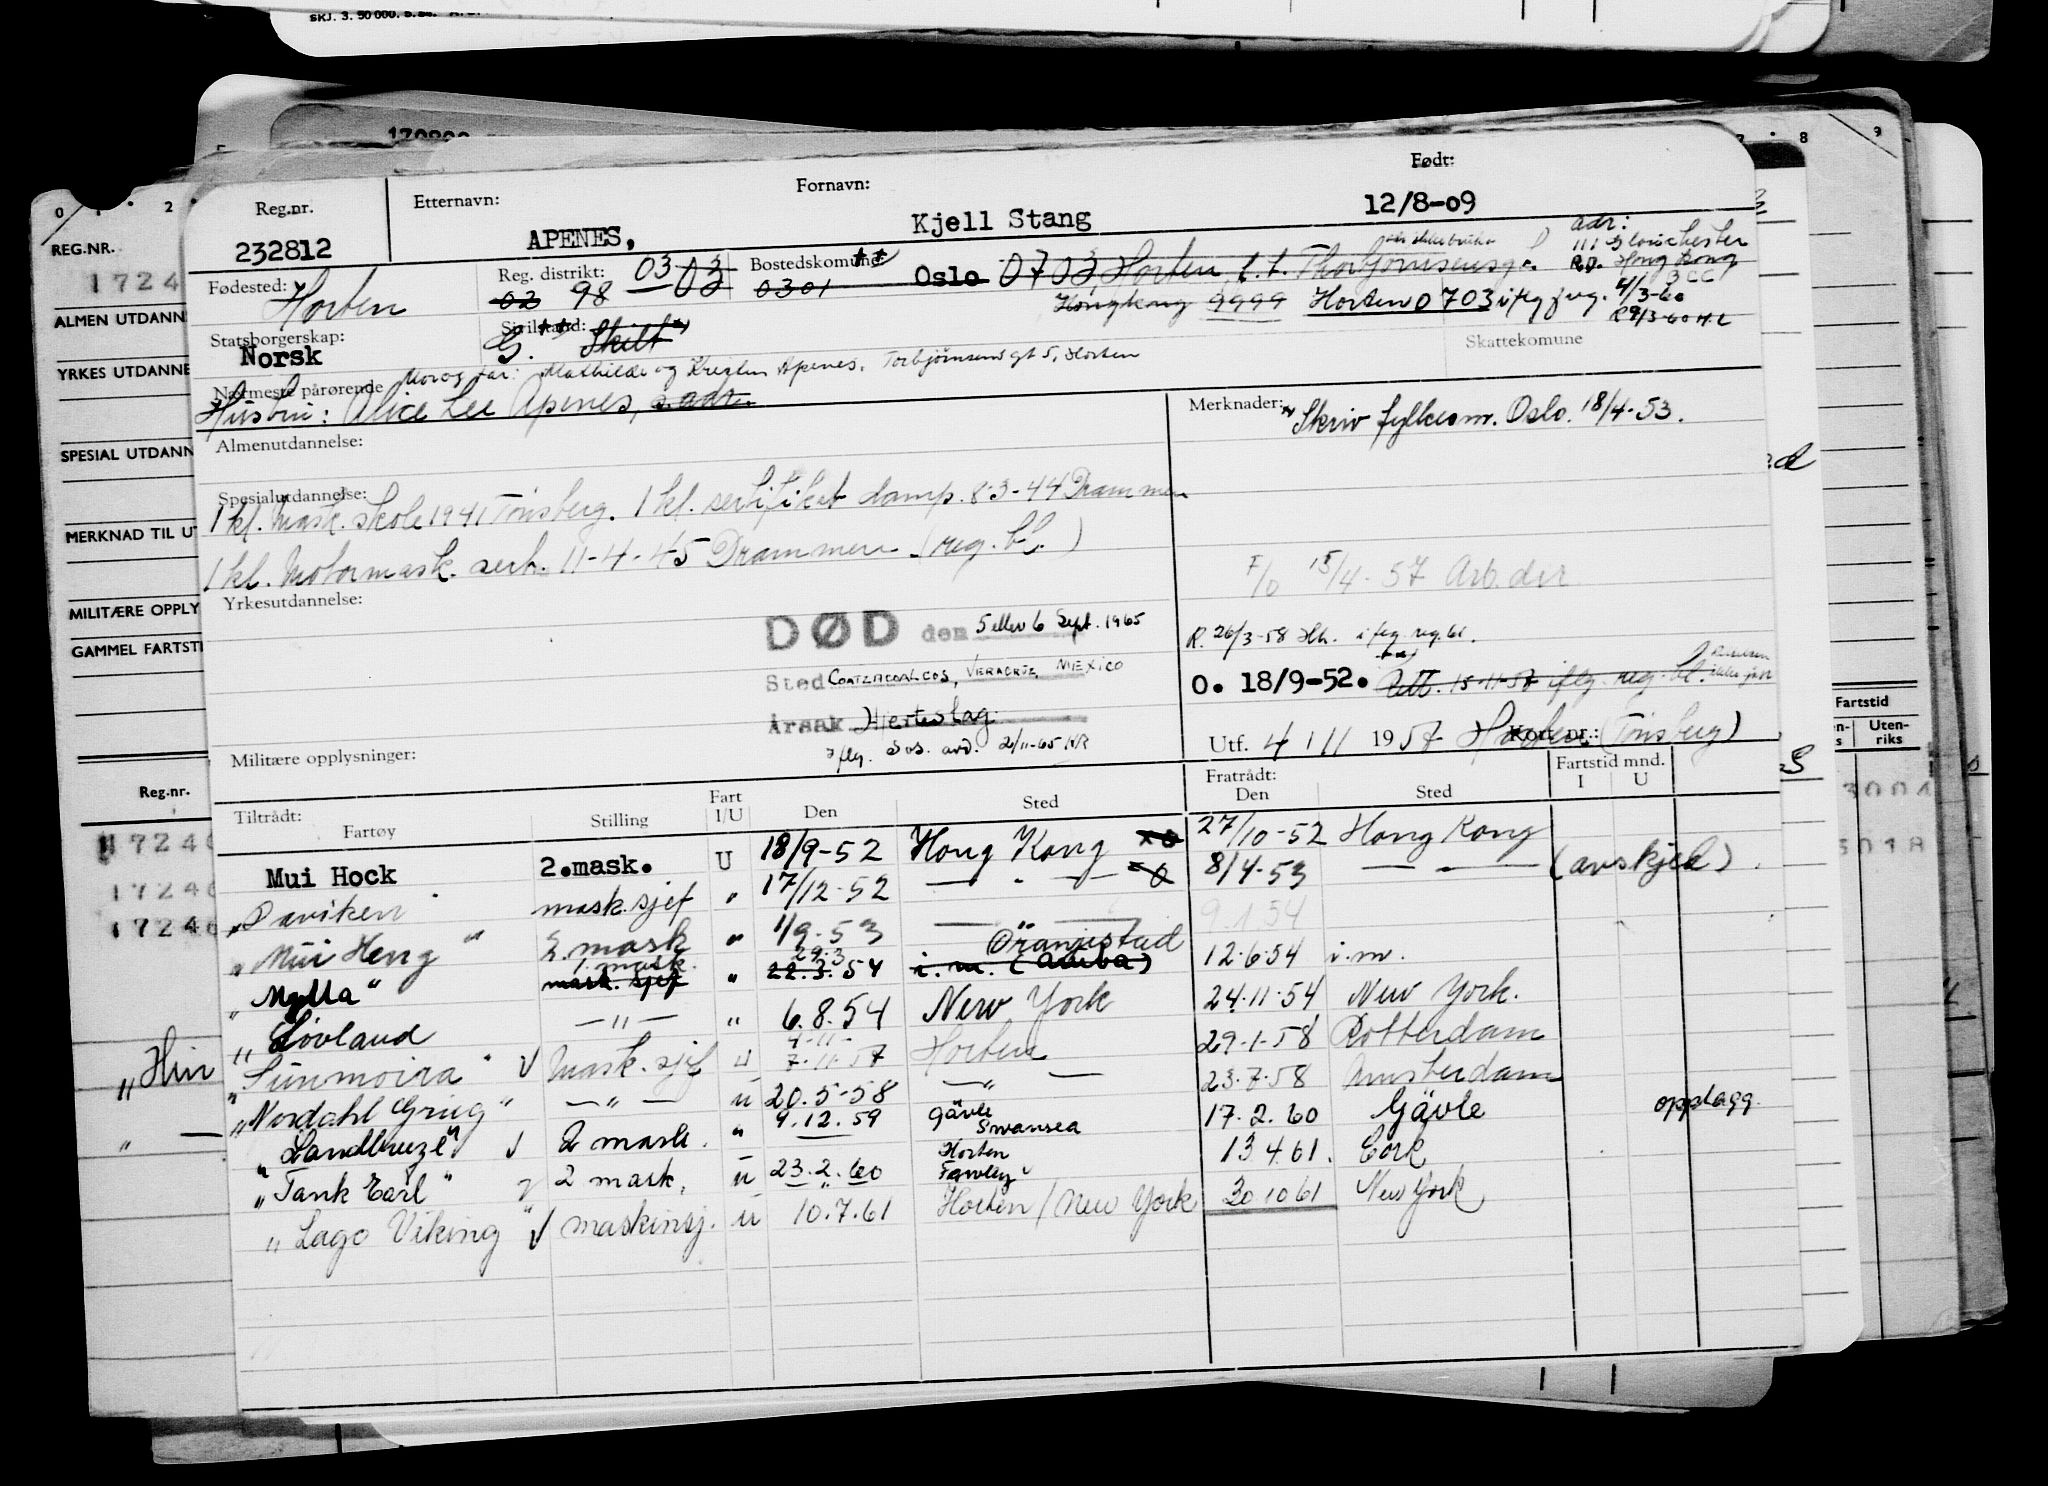 SKJ. 3. 50 000. 5.
170900
0 1 2
7 8 9
REG.NR.
1724
ALMEN UTDANN
YRKES UTDANNE
SPESIAL UTDANN
MERKNAD TIL UT
MILITÆRE OPPLY
GAMMEL FARTSTI
Reg.nr.
17240
17240
17240
"Hin
Fartstid
Uten-
riks
3001
3018
Reg.nr. Etternavn: Fornavn: Født:
232812 APENES, Kjell Stang 12/8-09
adr:
111 Glouchester
Rd. Hong Kong
4/3-60
Fødested: Horten
Reg. distrikt: 03 03
02 98
Bostedskomune ** Oslo 0703 Horten
0301
Hongkong 9999 Horten 0703 iflg. jvg.
Statsborgerskap: Norsk
Sivilstand: ** Skilt *)
G.
Skattekomune
Nærmeste pårørende Mor og far: Mathilde og Kristen Apenes, Torbjørnsensgt 5, Horten
Hustru: Alice Lee Apenes, s. adr.
Merknader: *) Skriv fylkesm. Oslo. 18/4-53.
Almenutdannelse:
Spesialutdannelse:
1 kl. mask. skole 1941 Tønsberg. 1 kl. sertifikat damp. 8-3-44 Drammen
1 kl. Motormask. sert. 11-4-45 Drammen (reg. bl.)
F/O 15/4-57 Arb.dir.
Yrkesutdannelse:
DØD den 5 eller 6 Sept. 1965
Sted COATZACOALCOS, VERACRUZ, MEXICO
Årsak Hjerteslag
Iflg. Sos. avd. 2/11-65 KR
R. 26/3-58 Hh. iflg. reg. bl.
O. 18/9-52. Utt. 15-11-57 iflg. reg. bl.
Utf. 4 / 11 1957 Horten (Tønsberg)
Kort nr.:
Militære opplysninger:
Tiltrådt: Fratrådt: Fartstid mnd.
Fartøy Stilling Fart I/U Den Sted Den Sted I U
Mui Hock 2.mask. U 18/9-52 Hong Kong 27/10-52 Hong Kong
"Daviken" mask.sjef " 17/12-52 — " — 8/4-53 — " — (avskjed)
"Mui Heng" 2. mask " 1/9-53 — " — 9.1.54
"Molla" 1. mask. mask. sjef " 29.3 22.3.54 Oranjestad i.m. (Aruba) 12.6.54 i.m.
"Lövland — " — " 6.8.54 New York 24.11.54 New York.
"Sunmoira" √ Mask. sjef u 4-11- 7-11-57 Horten 29-1-58 Rotterdam
"Nordahl Grieg" — " — u 20.5-58 — " — 23.7.58 Amsterdam
"Landbreeze" √ 2 mask. " 9.12.59 Gävle Swansea 17.2.60 Gävle opplagg.
"Tank Earl" 2 mask. u 23.2.60 Horten Fawley 13 4 61. Cork
"Lago Viking" √ maskinsj. u 10.7.61 Horten / New York 30 10 61 New York